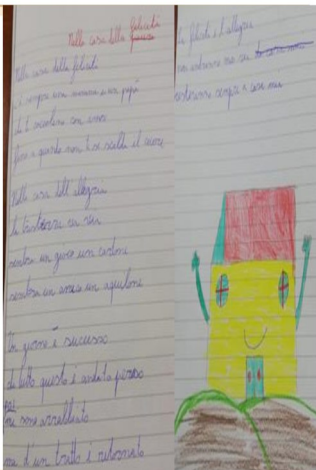 Nella casa della felicità
Nella casa della felicità
c'è sempre una mamma e un papà
che ti ascoltano con amore
fino a quando non ti si scalda il cuore.
Nella casa dell'allegria
la tristezza va via
sembra un gioco un cartone
sembra un amico un aquilone
Un giorno è successo
che tutto questo è andato perso
poi
me sono arrabbiato
ma d'un tratto è ritornato
La felicità e l'allegria
non entrano mai
entrano sempre a casa mia